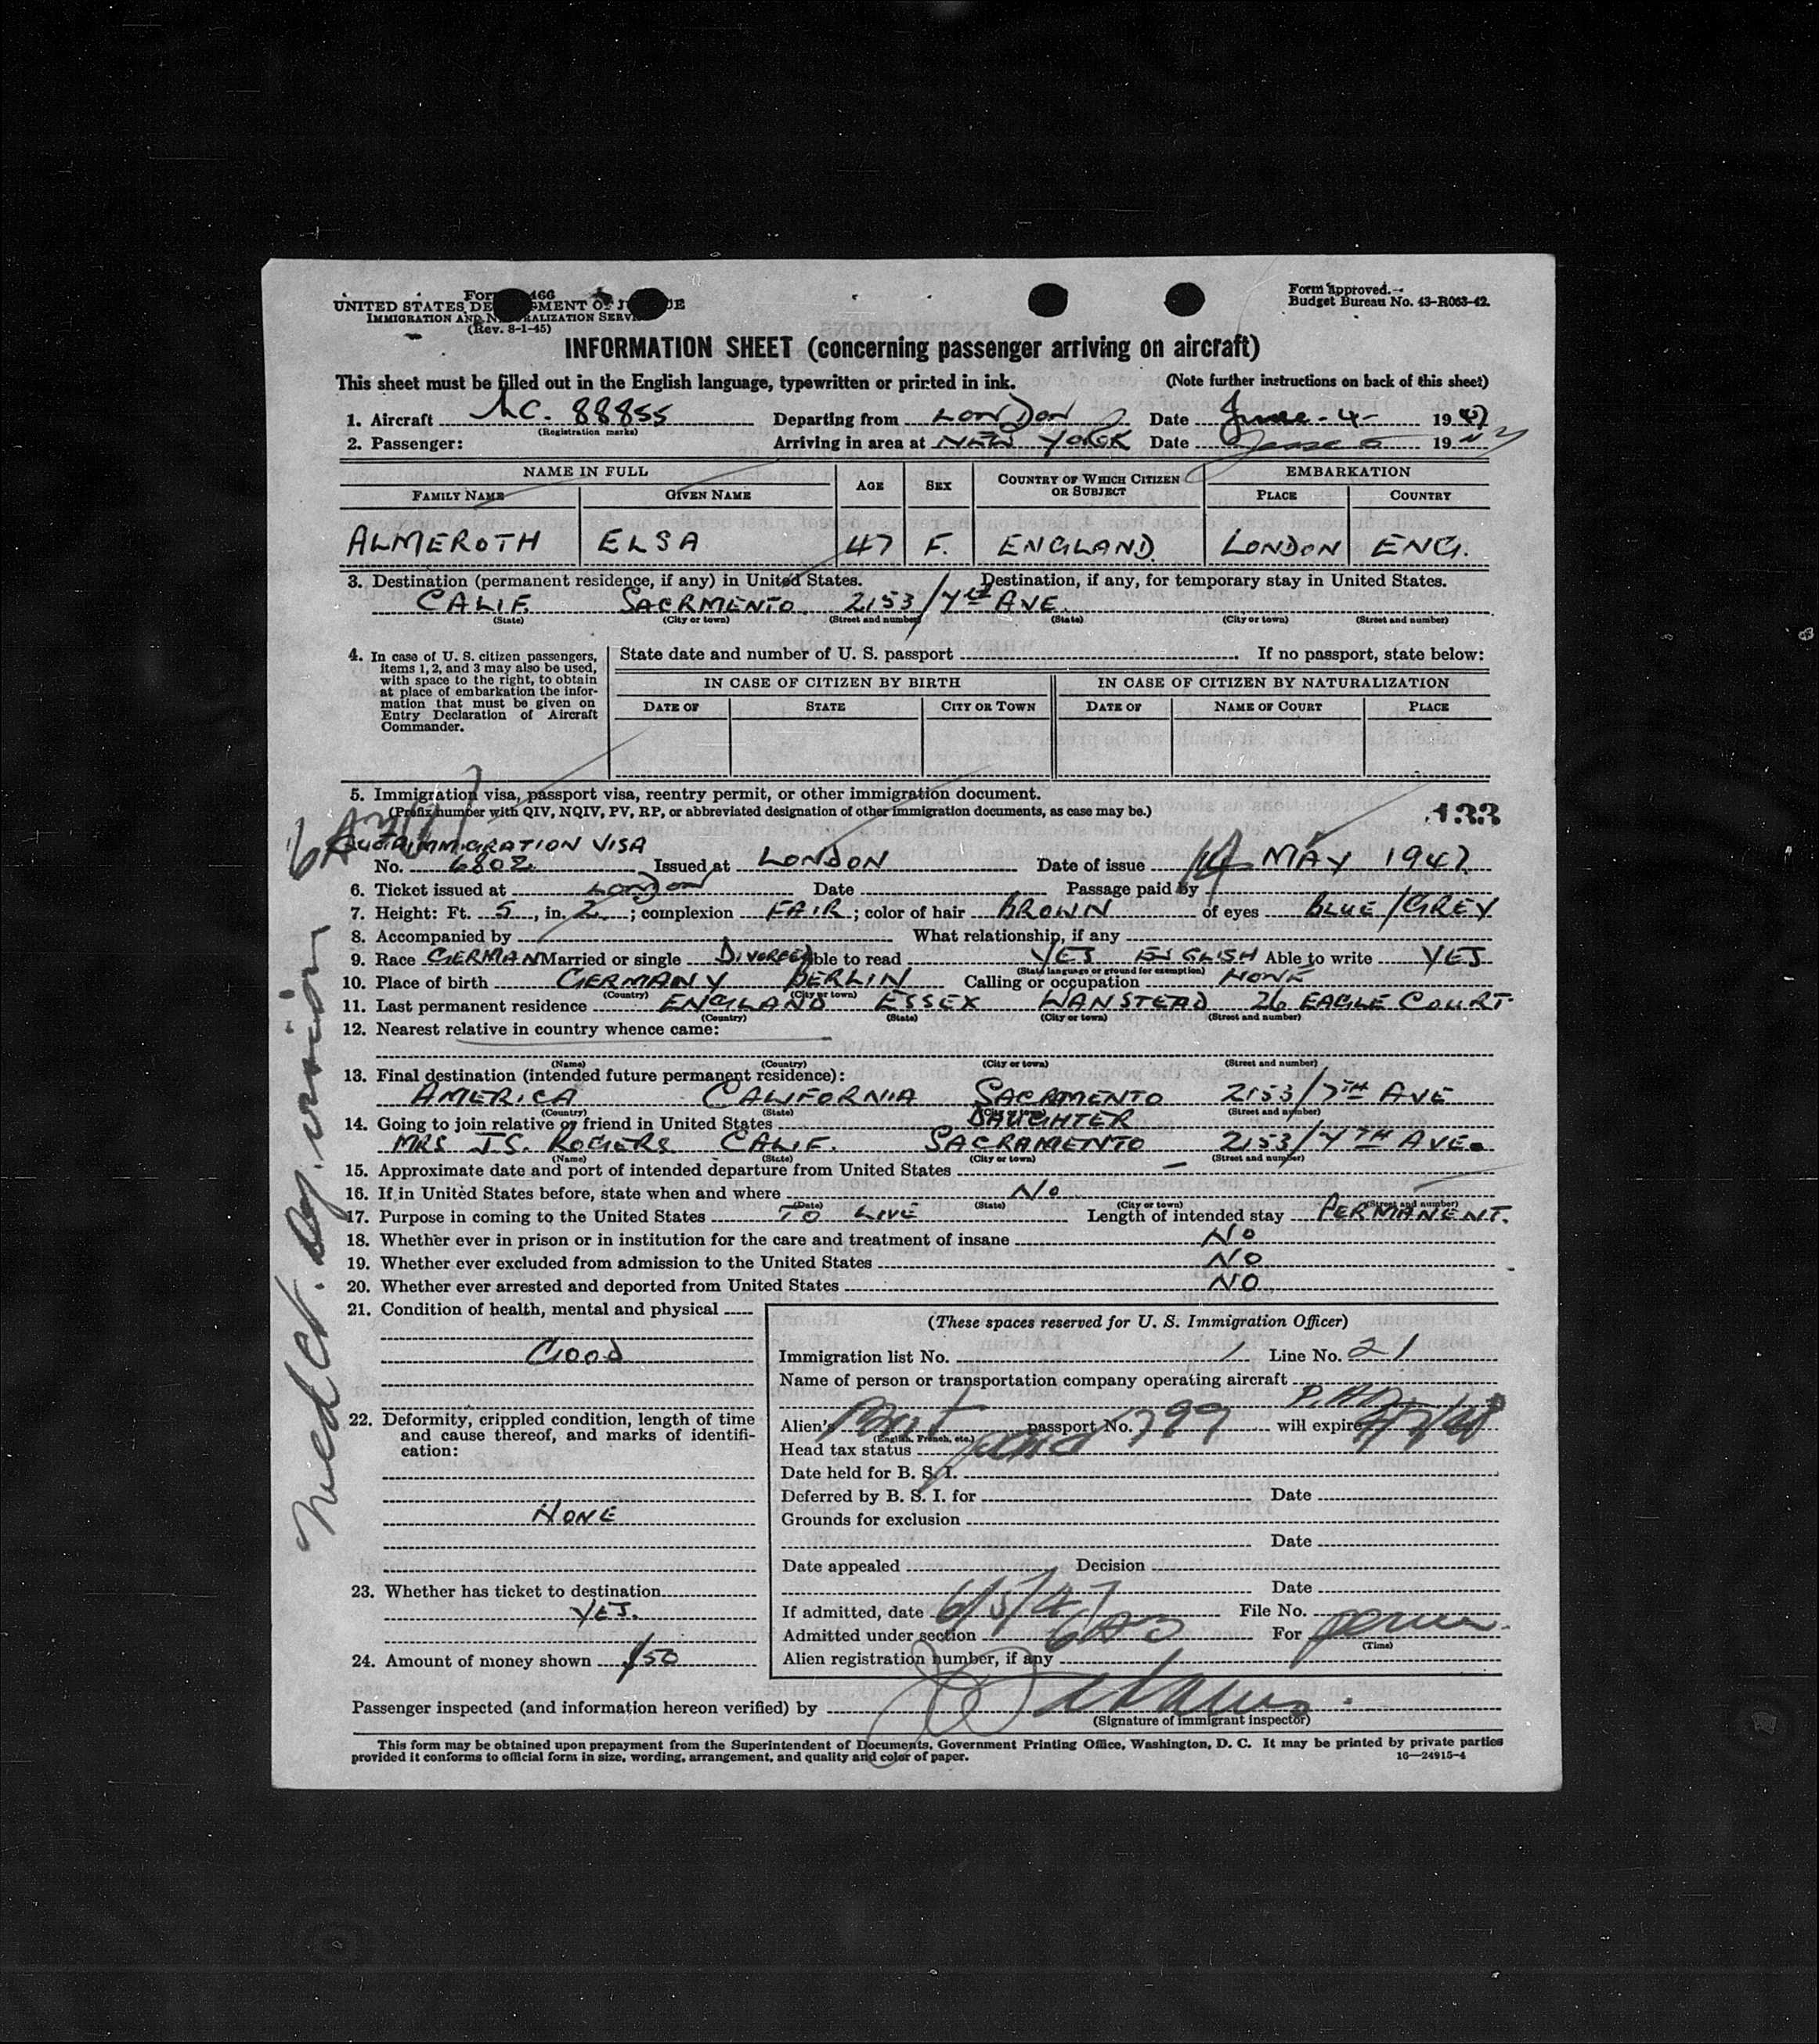 Form 466
UNITED STATES DEPARTMENT OF JUSTICE
IMMIGRATION AND NATURALIZATION SERVICE
(Rev. 8-1-45)
Form approved.
Budget Bureau No. 43-R063-42.
INFORMATION SHEET (concerning passenger arriving on aircraft)
This sheet must be filled out in the English language, typewritten or printed in ink. (Note further instructions on back of this sheet)
1. Aircraft NC. 88855 Departing from LONDON Date June - 4 - 1947
(Registration marks)
2. Passenger: Arriving in area at NEW YORK Date June 5 19
NAME IN FULL AGE SEX COUNTRY OF WHICH CITIZEN OR SUBJECT EMBARKATION
FAMILY NAME GIVEN NAME PLACE COUNTRY
ALMEROTH ELSA 47 F. ENGLAND LONDON ENG.
3. Destination (permanent residence, if any) in United States. Destination, if any, for temporary stay in United States.
CALIF. SACRMENTO. 2153/7th AVE.
(State) (City or town) (Street and number) (State) (City or town) (Street and number)
4. In case of U. S. citizen passengers, items 1, 2, and 3 may also be used, with space to the right, to obtain at place of embarkation the information that must be given on Entry Declaration of Aircraft Commander.
State date and number of U. S. passport If no passport, state below:
IN CASE OF CITIZEN BY BIRTH IN CASE OF CITIZEN BY NATURALIZATION
DATE OF STATE CITY OR TOWN DATE OF NAME OF COURT PLACE
5. Immigration visa, passport visa, reentry permit, or other immigration document.
(Prefix number with QIV, NQIV, PV, RP, or abbreviated designation of other immigration documents, as case may be.)
133
IMMIGRATION VISA
No. 6802 Issued at LONDON Date of issue 14 MAY 1947.
6. Ticket issued at LONDON Date Passage paid by
7. Height: Ft. 5, in. 2; complexion FAIR; color of hair BROWN of eyes BLUE/GREY
8. Accompanied by What relationship, if any
9. Race GERMAN Married or single DIVORCED Able to read YES ENGLISH Able to write YES
(State language or ground for exemption)
10. Place of birth GERMANY BERLIN Calling or occupation NONE
(Country) (City or town)
11. Last permanent residence ENGLAND ESSEX WANSTEAD 26 EAGLE COURT.
(Country) (State) (City or town) (Street and number)
12. Nearest relative in country whence came:
(Name) (Country) (City or town) (Street and number)
13. Final destination (intended future permanent residence):
AMERICA CALIFORNIA SACRAMENTO 2153/7TH AVE
(Country) (State) (City or town) (Street and number)
14. Going to join relative or friend in United States DAUGHTER
MRS J.S. ROGERS CALIF. SACRAMENTO 2153/7TH AVE.
(Name) (State) (City or town) (Street and number)
15. Approximate date and port of intended departure from United States —
16. If in United States before, state when and where No
(Date) (State) (City or town) (Street and number)
17. Purpose in coming to the United States TO LIVE Length of intended stay PERMANENT.
18. Whether ever in prison or in institution for the care and treatment of insane No
19. Whether ever excluded from admission to the United States NO
20. Whether ever arrested and deported from United States NO
21. Condition of health, mental and physical
GOOD
22. Deformity, crippled condition, length of time and cause thereof, and marks of identification:
NONE
23. Whether has ticket to destination
YES.
24. Amount of money shown $50
(These spaces reserved for U. S. Immigration Officer)
Immigration list No. 1 Line No. 21
Name of person or transportation company operating aircraft
P.AA.
Alien's Brit passport No. 799 will expire
(English, French, etc.)
Head tax status
Date held for B. S. I.
Deferred by B. S. I. for Date
Grounds for exclusion
Date
Date appealed Decision
Date
If admitted, date 6/5/47 File No.
Admitted under section 6A3 For perm.
(Time)
Alien registration number, if any
Passenger inspected (and information hereon verified) by
(Signature of immigrant inspector)
This form may be obtained upon prepayment from the Superintendent of Documents, Government Printing Office, Washington, D. C. It may be printed by private parties
provided it conforms to official form in size, wording, arrangement, and quality and color of paper. 16—24915-4